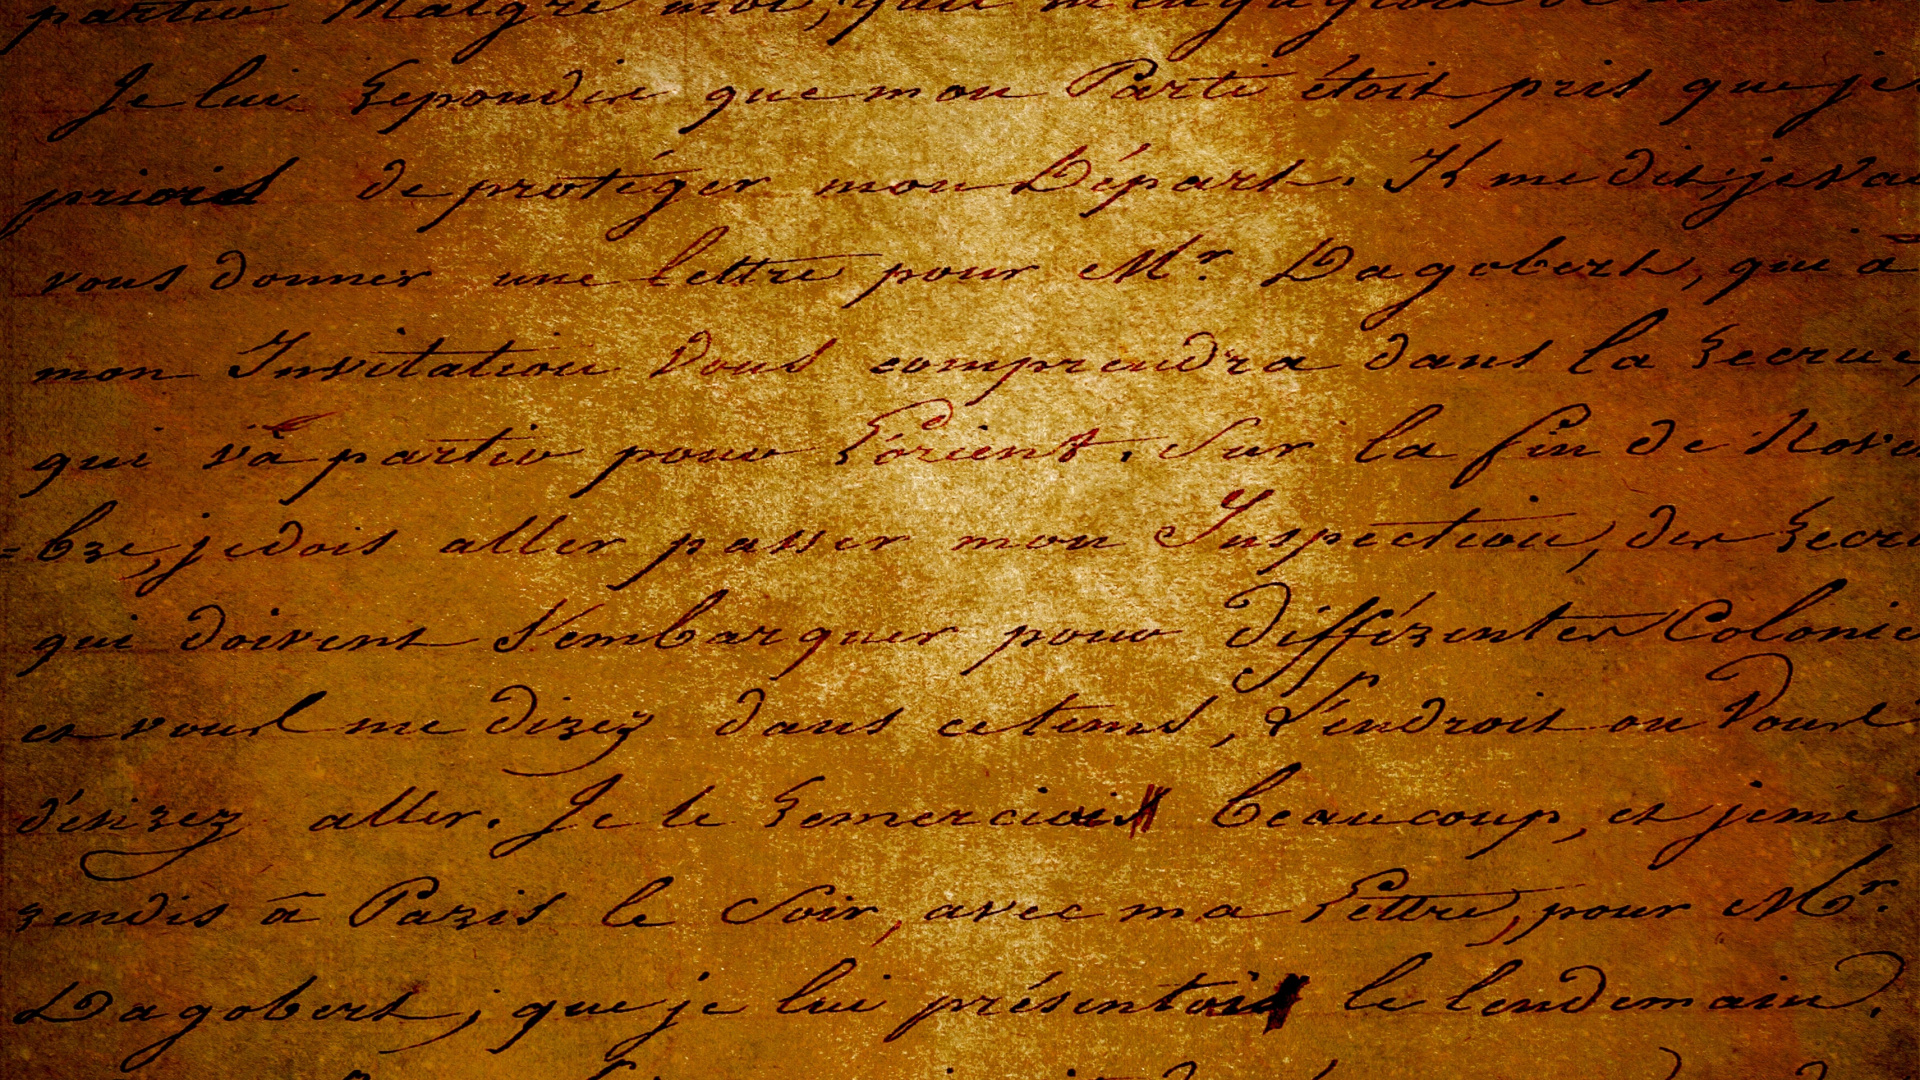 partir Malgré moi,
Je lui répondis que mon Parti étoit pris que je
priois de protéger mon Départ. Il me dit; je vai
vous donner une lettre pour Mr. Dagobert, qui à
mon Invitation Vous comprendra dans la recrue,
qui và partir pour L'orient. Sur la fin de Novem
=bre, je dois aller passer mon Inspection, des recru
qui doivent s'embarquer pour différentes Colonie
et vous me direz dans ce tems, l'endroit ou Vous
désirez aller. Je le remerciois beaucoup, et je me
rendis à Paris le Soir, avec ma Lettre, pour Mr.
Dagobert; que je lui présentois le lendemain.